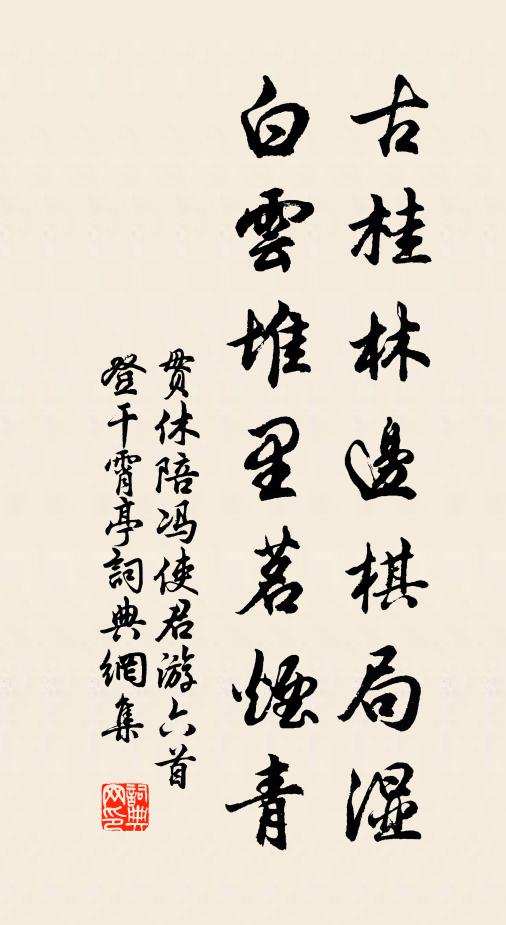 古桂林邊棋局湿
白雲堆里茗煙青
贯休陪冯使君游六首
登干霄亭詞典網集
詞典
网印